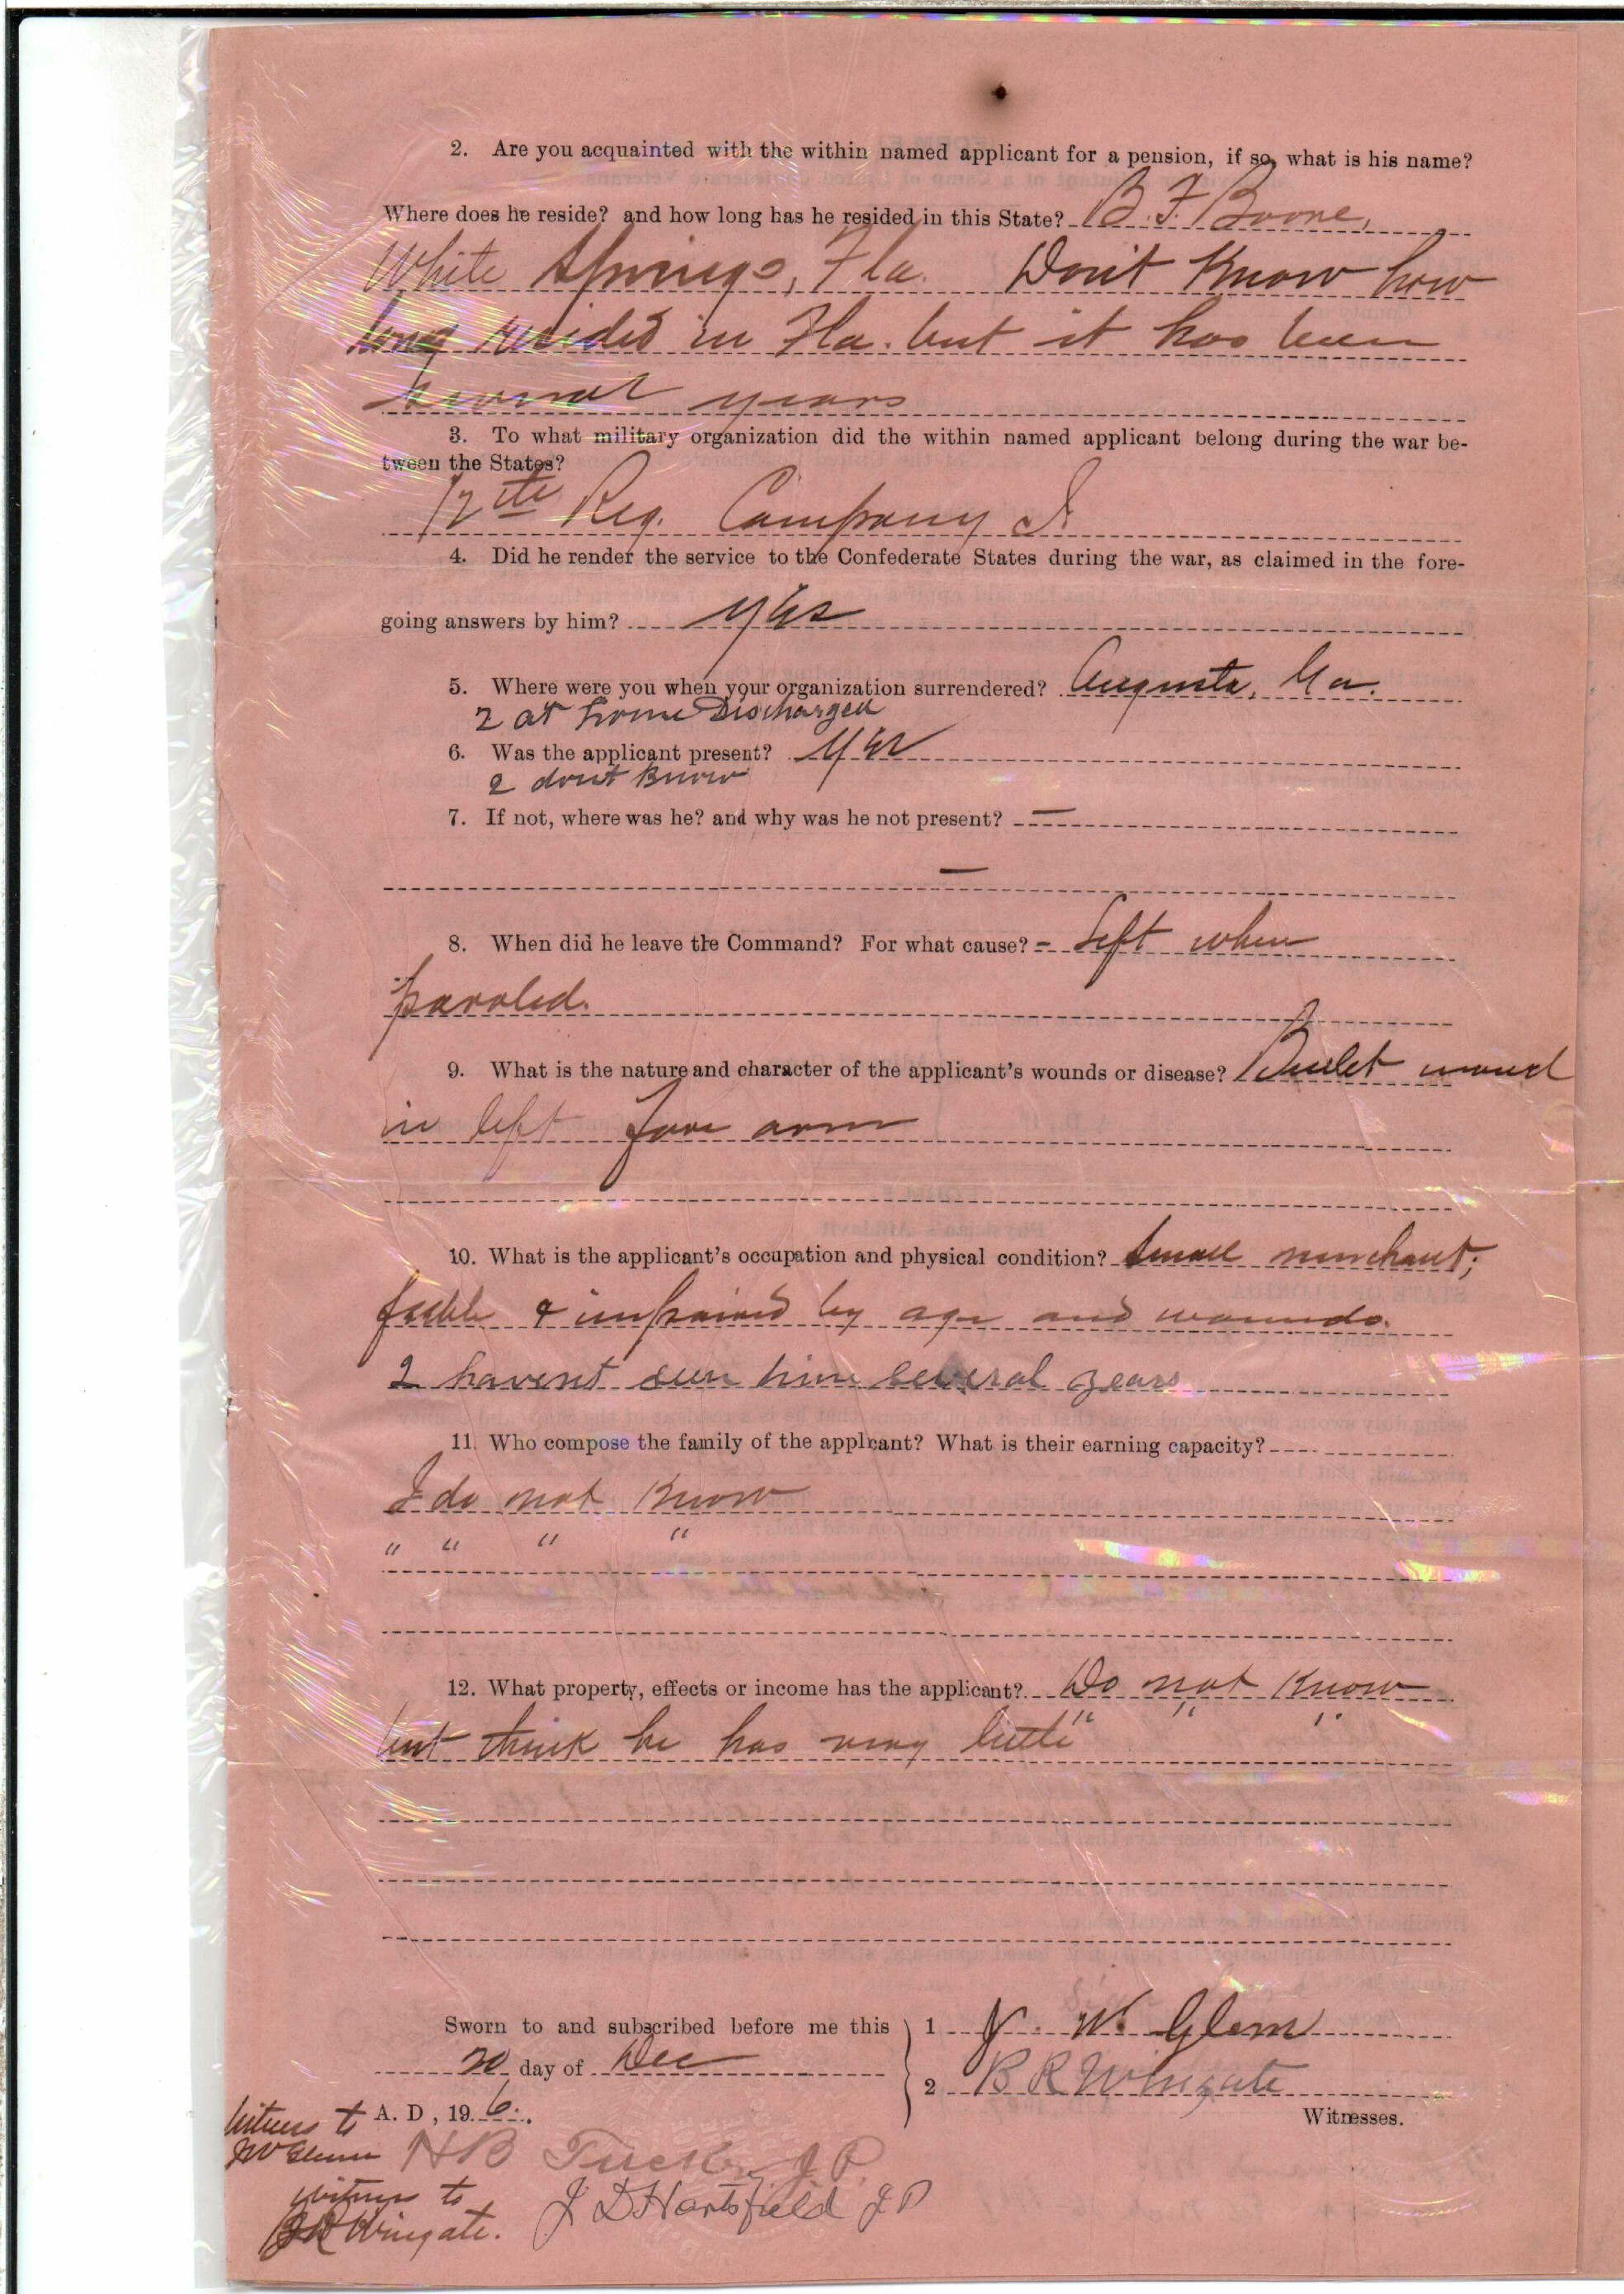 2. Are you acquainted with the within named applicant for a pension, if so, what is his name?
Where does he reside? and how long has he resided in this State? B. F. Boone,
White Springs, Fla. Don't Know how
long resided in Fla. but it has been
several years
3. To what military organization did the within named applicant belong during the war be-
tween the States?
12th Reg. Company I
4. Did he render the service to the Confederate States during the war, as claimed in the fore-
going answers by him? yes
5. Where were you when your organization surrendered? Augusta, Ga.
2 at home Discharged
6. Was the applicant present? Yes
2 dont Know
7. If not, where was he? and why was he not present? —
—
8. When did he leave the Command? For what cause? - Left when
paroled.
9. What is the nature and character of the applicant's wounds or disease? Bullet wound
in left fore arm
10. What is the applicant's occupation and physical condition? Small merchant;
feeble & impaired by age and wounds.
2 havent seen him several years
11. Who compose the family of the applicant? What is their earning capacity?
I do not Know
" " " "
12. What property, effects or income has the applicant? Do not Know
" " "
but think he has very little
Sworn to and subscribed before me this
20 day of Dec
A. D, 19 6.
1 J. W. Glenn
2 B R Wingate
Witnesses.
Witness to
JW Glenn H B Tucker J. P.
witness to
B R Wingate. J D Hartsfield J P